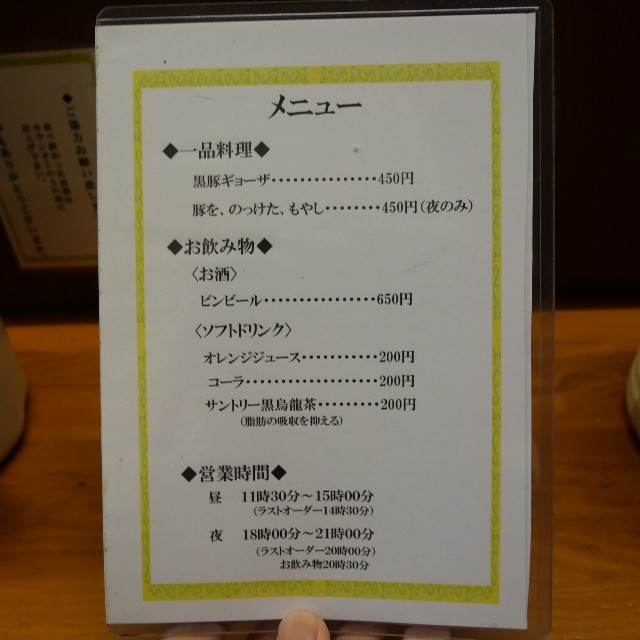 メニュー
◆一品料理◆
黒豚ギョーザ・・・・・・・・・・・・・・・450円
豚を、のっけた、もやし・・・・・・・・450円(夜のみ)
◆お飲み物◆
〈お酒〉
ビンビール・・・・・・・・・・・・・・・・650円
〈ソフトドリンク〉
オレンジジュース・・・・・・・・・・・200円
コーラ・・・・・・・・・・・・・・・・・・・200円
サントリー黒烏龍茶・・・・・・・・・200円
(脂肪の吸収を抑える)
◆営業時間◆
昼 11時30分～15時00分
(ラストオーダー14時30分)
夜 18時00分～21時00分
(ラストオーダー20時00分)
お飲み物20時30分
◆ご協力お願い致し
ありがとうございます。